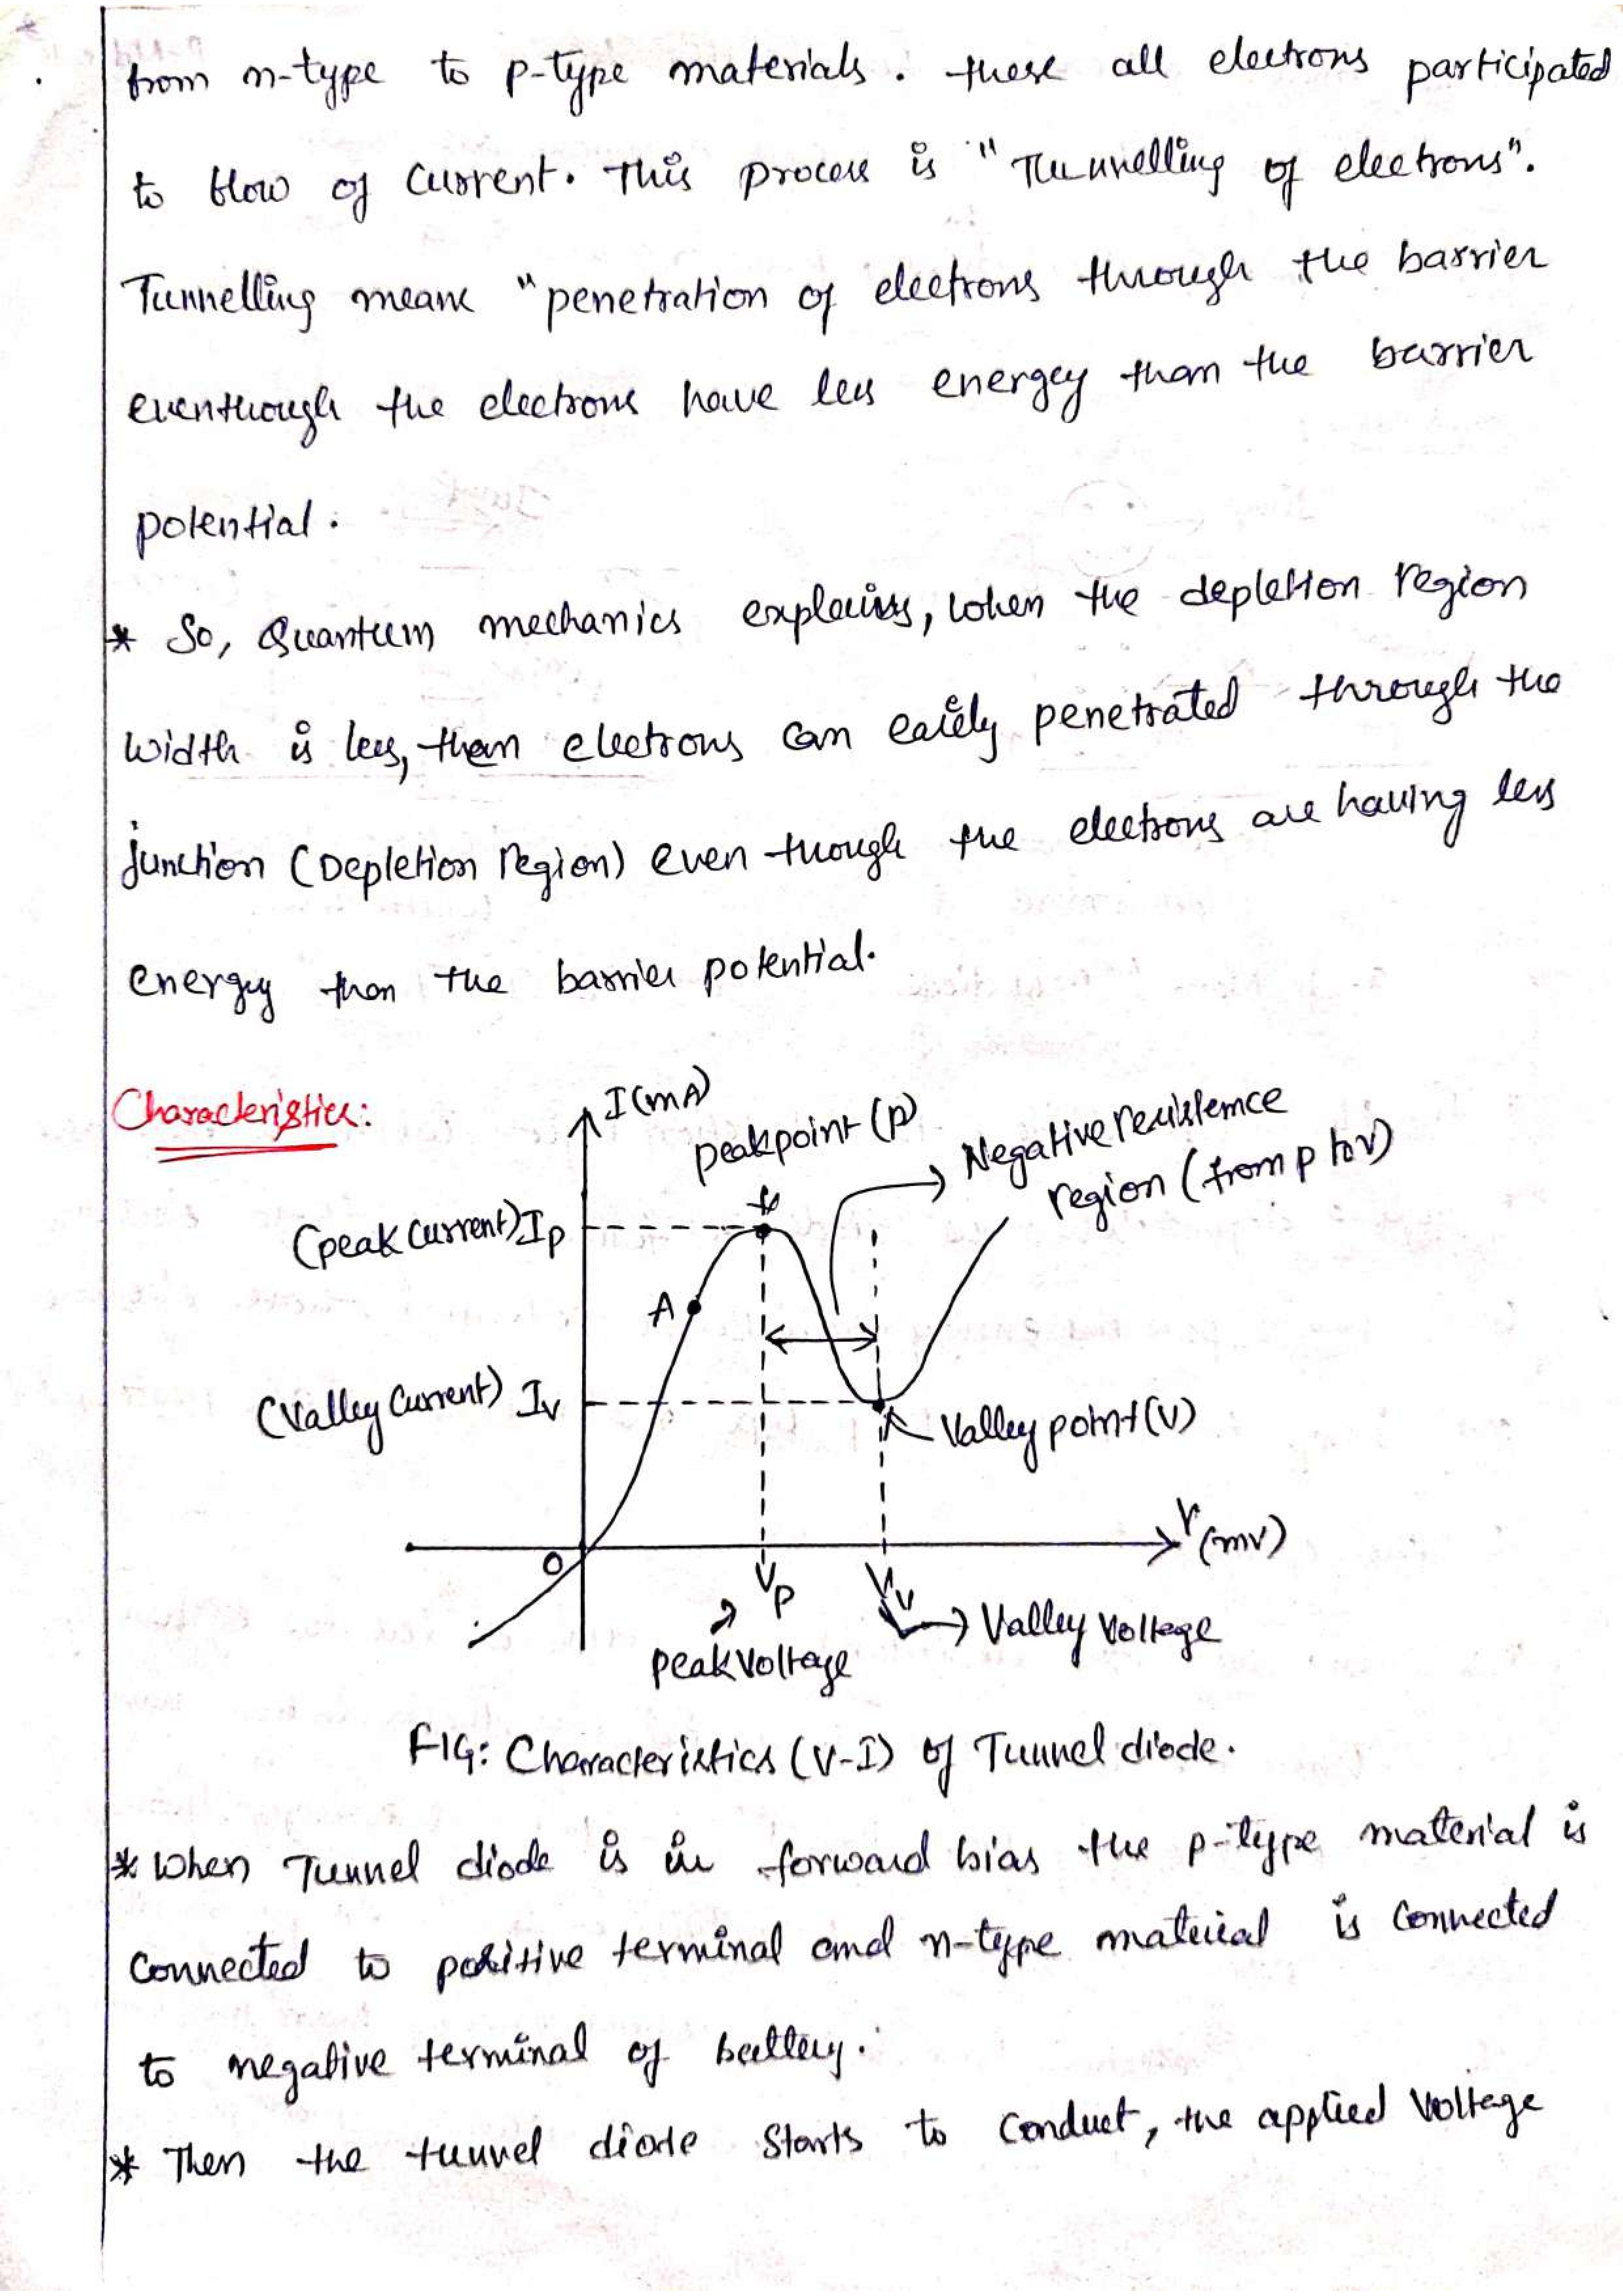 from n-type to p-type materials. these all electrons participated
to flow of current. This process is "Tunnelling of electrons".
Tunnelling means "penetration of electrons through the barrier
eventhough the electrons have less energy than the barrier
potential.
* So, Quantum mechanics explains, when the depletion region
width is less, then electrons can easily penetrated through the
junction (Depletion region) even though the electrons are having less
energy than the barrier potential.
Characteristics:
I(mA)
peakpoint (p)
Negative resistence
region (from p to v)
(peak current) Ip
A
(Valley Current) Iv
Valley point (V)
V(mv)
O
Vp
Vv
Valley Voltage
peak voltage
FIG: Characteristics (V-I) of Tunnel diode.
* When Tunnel diode is in forward bias the p-type material is
connected to positive terminal and n-type material is connected
to negative terminal of battery.
* Then the tunnel diode starts to conduct, the applied voltage